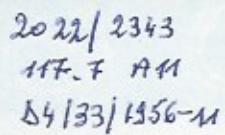 2022/2343
117.7 A11
D4/33/1956-11